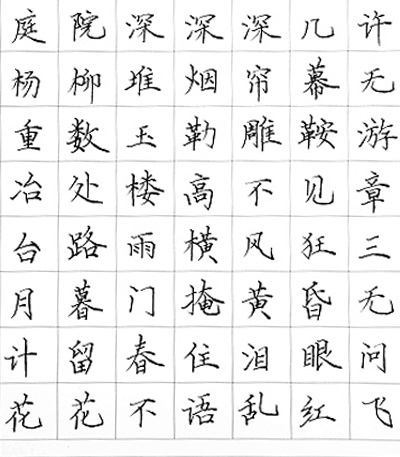 庭院深深深几许
杨柳堆烟帘幕无
重数玉勒雕鞍游
冶处楼高不见章
台路雨横风狂三
月暮门掩黄昏无
计留春住泪眼问
花花不语乱红飞